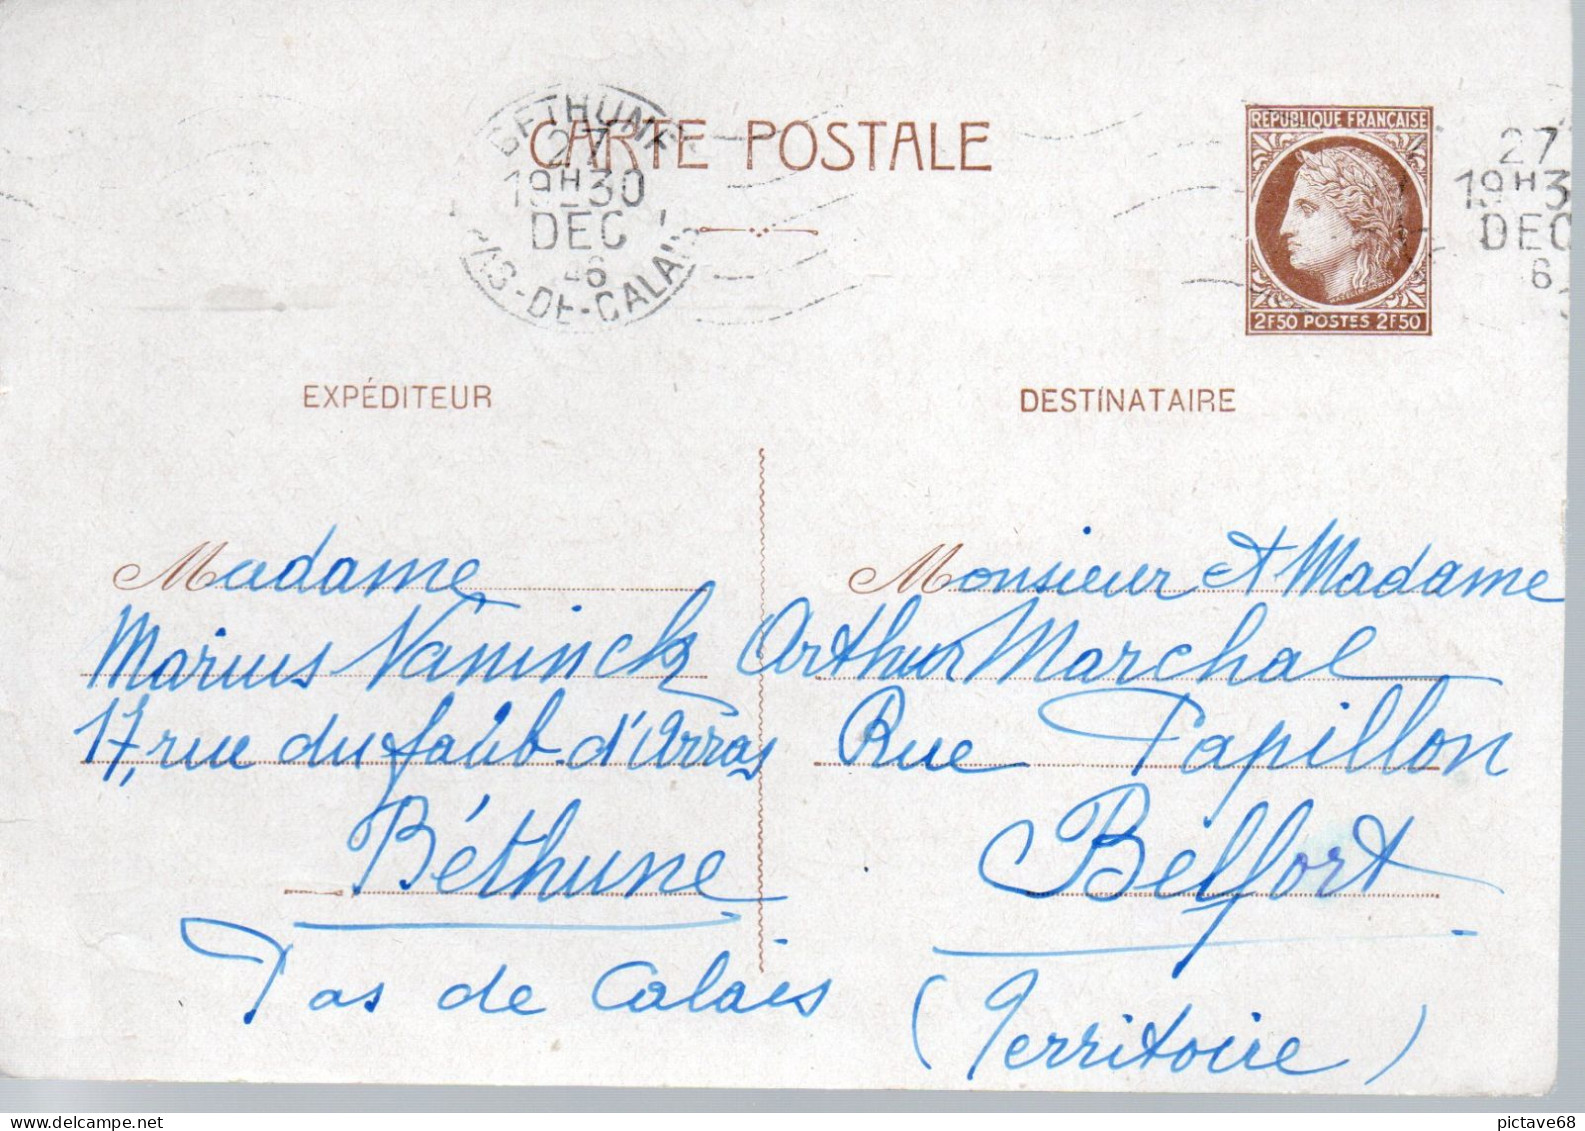 BETHUNE
27
19H30
DEC
46
PAS-DE-CALAIS
CARTE POSTALE
REPUBLIQUE FRANÇAISE
MAZELIN. CORTOT
2F50 POSTES 2F50
27
19H3
DEC
6
EXPÉDITEUR
Madame
Marius Vaninck
17, rue du faub. d'Arras
Béthune
Pas de Calais
DESTINATAIRE
Monsieur et Madame
Arthur Marchal
Rue Papillon
Belfort
(Territoire)
pictave68